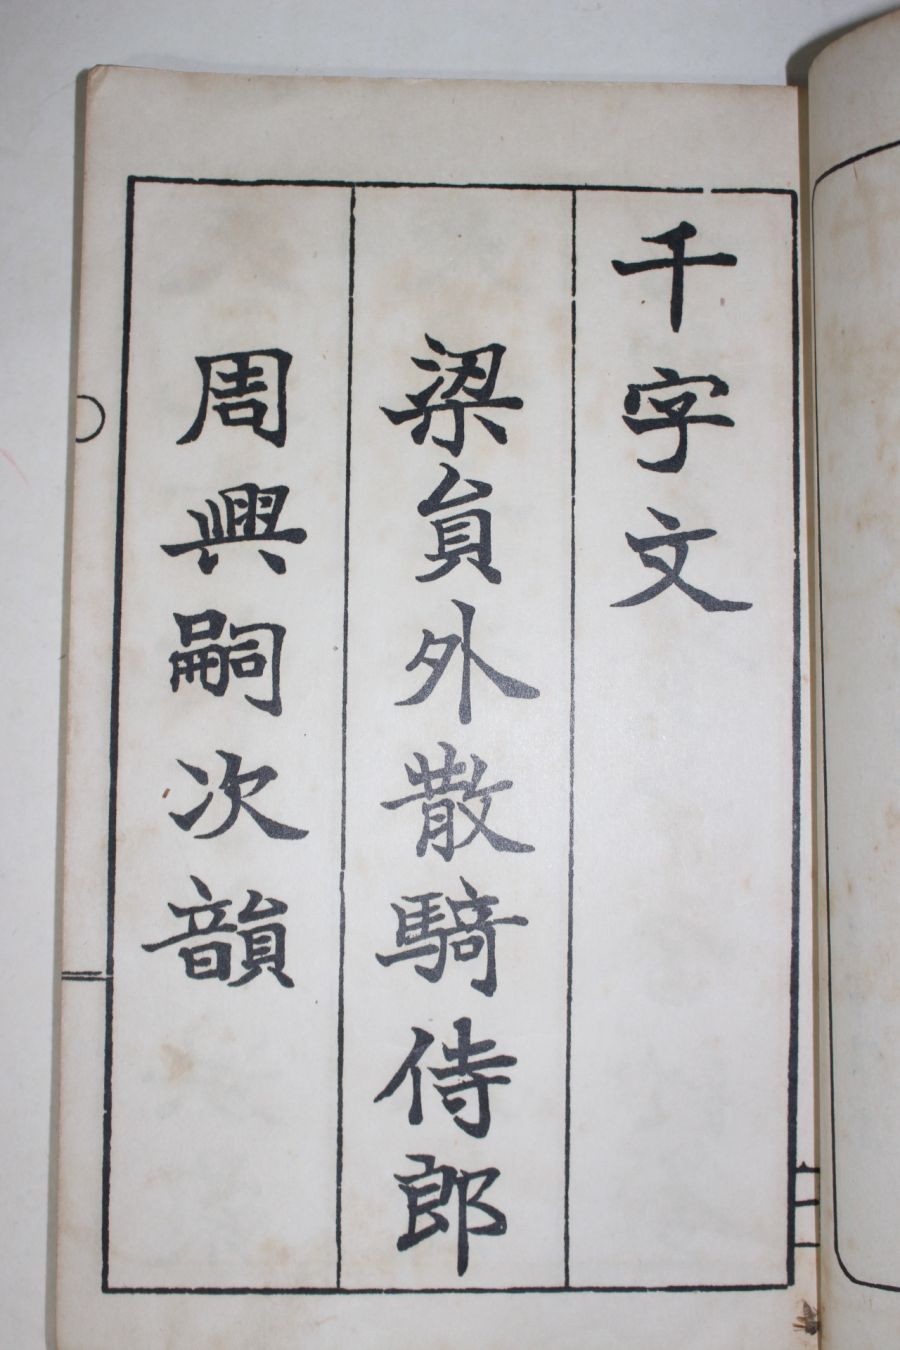 千字文
梁員外散騎侍郎
周興嗣次韻